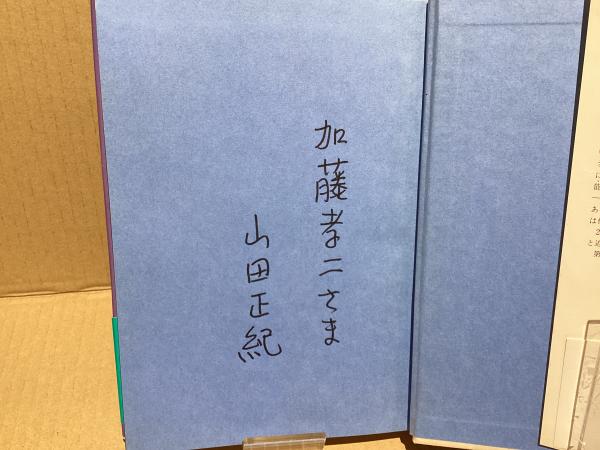 加藤孝二さま
山田正紀